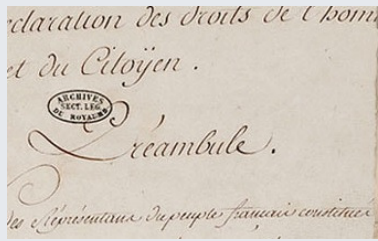 éclaration des droits de l'hom
et du Citoÿen.
ARCHIVES
SECT. LEG
DU ROYAUME
Préambule.
Les Représentans du peuple français constitués